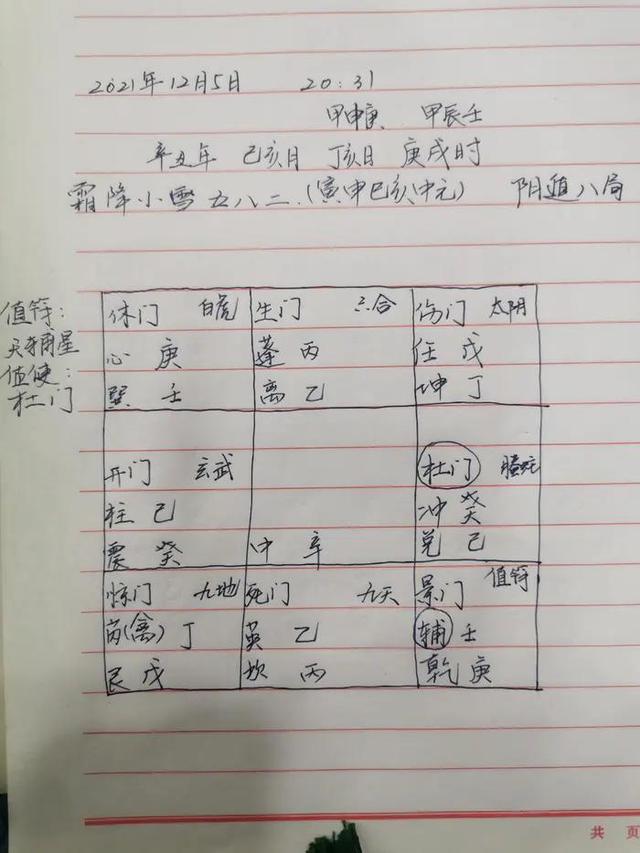 2021年12月5日 20:31
甲申庚 甲辰壬
辛丑年 己亥月 丁亥日 庚戌时
霜降小雪五八二.(寅申巳亥中元) 阴遁八局
值符:
天辅星
值使:
杜门
休门 白虎 生门 六合 伤门 太阴
心 庚 蓬 丙 任 戊
巽 壬 离 乙 坤 丁
开门 玄武 杜门 螣蛇
柱 己 冲 癸
震 癸 中 辛 兑 己
惊门 九地 死门 九天 景门 值符
芮(禽) 丁 英 乙 辅 壬
艮 戊 坎 丙 乾 庚
共 页